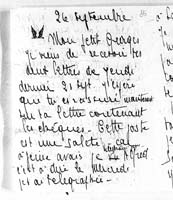 26 Septembre
Mon petit Georges
Je viens de recevoir tes
deux lettres de jeudi
dernier 21 sept. J'espère
que tu es rassuré maintenant
sur ta lettre contenant
les chèques. Cette poste
est une saleté; ça
à peine avais je
c'est à dire le Mercredi
jet ai télégraphié.